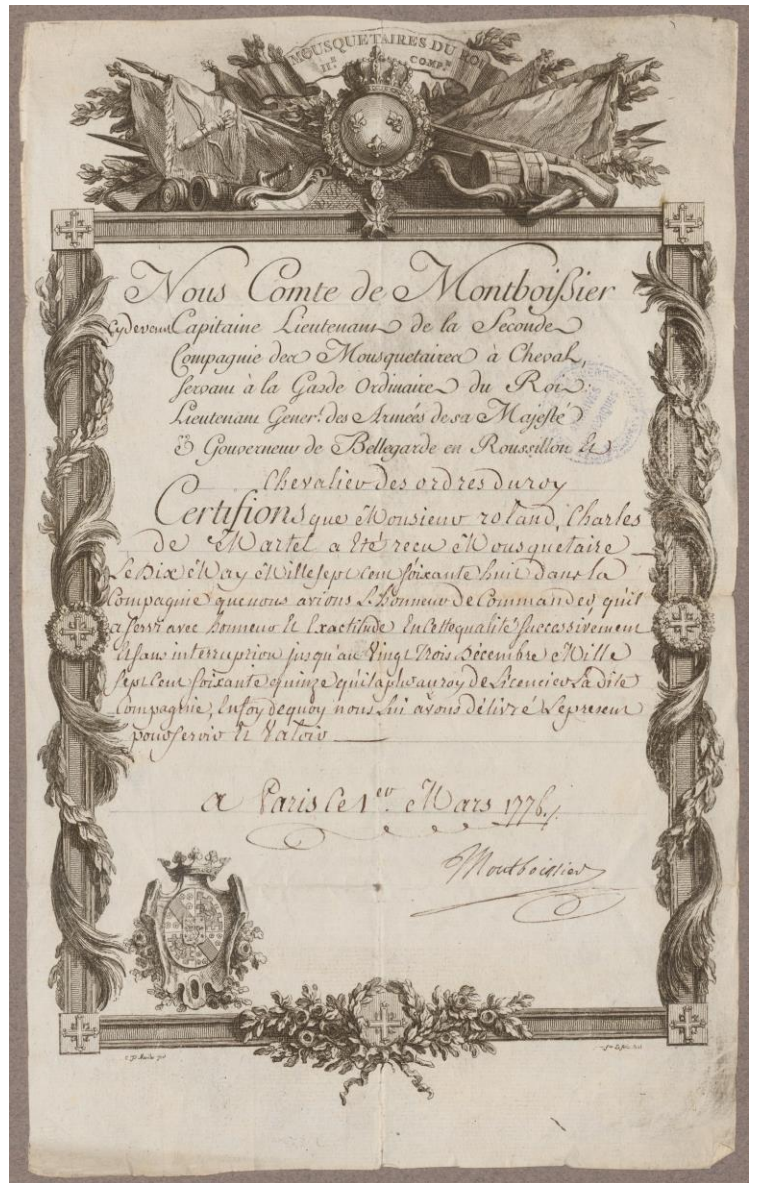 MOUSQUETAIRES DU ROI
II.E COMP.E
Nous Comte de Montboissier
Cydevant Capitaine Lieutenant de la Seconde
Compagnie des Mousquetaires à Cheval,
servant à la Garde Ordinaire du Roi:
Lieutenant Gener.l des Armées de sa Majesté
& Gouverneur de Bellegarde en Roussillon Et
Chevalier des ordres du roy
Certifions que Monsieur roland, Charles
de Martel a Eté recu Mousquetaire
Le Dix May Mille sept Cent soixante huit Dans la
Compagnie que nous avions L'honneur De Commander, qu'il
a servi avec honneur Et Exactitude En Cette qualité successivement
Et sans interruption jusqu'au Vingt Trois Décembre Mille
Sept Cent soixante quinze qu'il a plu au roy de Licencier La dite
Compagnie, En foy de quoy nous Lui avons délivré Le present
pour servir Et Valoir
a Paris Ce 1er Mars 1776.
Montboissier